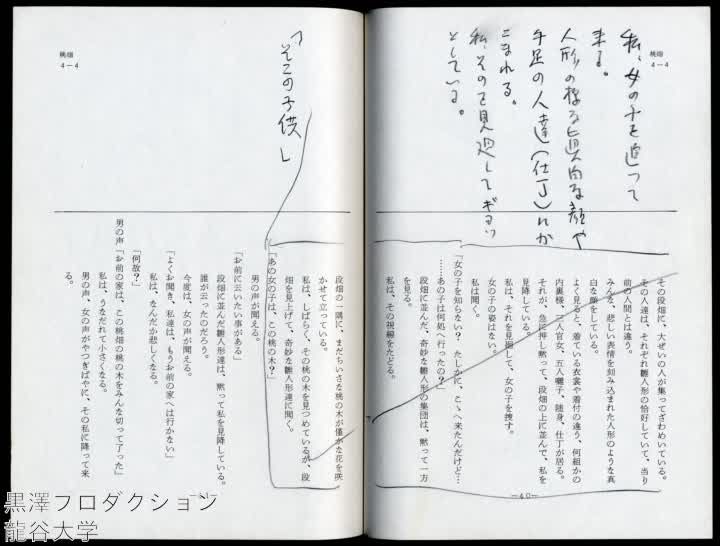 桃畑
4－4
私、女の子を追って
来る。
人形の様な真白な顔や
手足の人達（仕丁）にか
こまれる。
私、そのを見廻してギョッ
としている。
その段畑に、大ぜいの人が集ってざわめいている。
その人達は、それぞれ雛人形の恰好していて、当り
前の人間とは違う。
みんな、悲しい表情を刻み込まれた人形のような真
白な顔をしている。
よく見ると、着ている衣裳や着付の違う、何組かの
内裏様、三人官女、五人囃子、随身、仕丁が居る。
それが、急に押し黙って、段畑の上に並んで、私を
見降している。
私は、それを見廻して、女の子を捜す。
女の子の姿はない。
私は聞く。
「女の子を知らない？　たしかに、こゝへ来たんだけど…
……あの子は何処へ行ったの？」
段畑に並んだ、奇妙な雛人形の集団は、黙って一方
を見る。
私は、その視線をたどる。
―40―
桃畑
4－4
「そこの子供」
段畑の一隅に、まだちいさな桃の木が僅かな花を咲
かせて立っている。
私は、しばらく、その桃の木を見つめているが、段
畑を見上げて、奇妙な雛人形達に聞く。
「あの女の子は、この桃の木？」
男の声が聞える。
「お前に云いたい事がある」
段畑に並んだ雛人形達は、黙って私を見降している。
誰が云ったのだろう。
今度は、女の声が聞える。
「よくお聞き、私達は、もうお前の家へは行かない」
私は、なんだか悲しくなる。
「何故？」
男の声「お前の家は、この桃畑の桃の木をみんな切って了った」
私は、うなだれて小さくなる。
男の声、女の声がやつぎばやに、その私に降って来
る。
黒澤プロダクション
龍谷大学